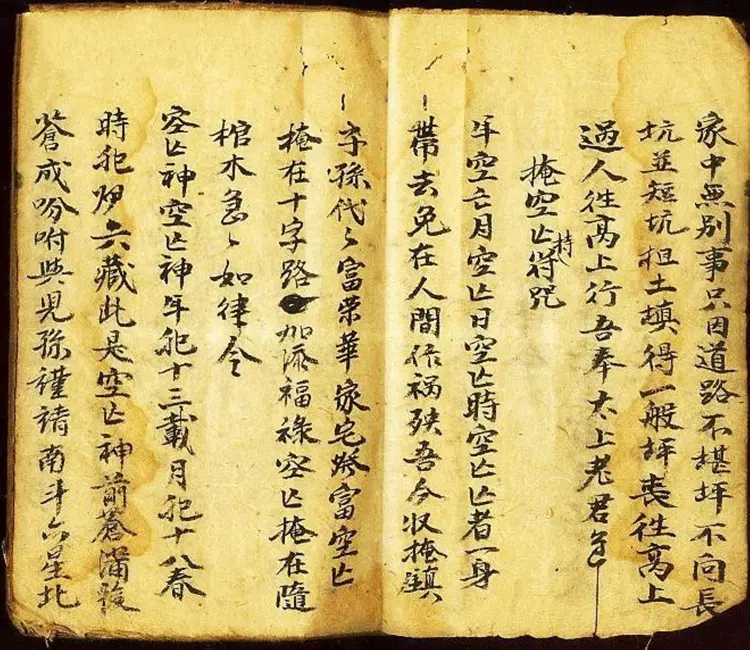 家中無別事只因道路不堪坪不向長
坑並短坑担土填得一般坪喪徃高上
過人徃高上行吾奉太上老君
掩空亡持符咒
年空亡月空亡日空亡時空亡亡者一身
帶去免在人間作禍殃吾今収掩鎮
子孫代〻富荣華家宅發富空亡
掩在十字路加添福祿空亡掩在隨
棺木急〻如律令
空亡神空亡神年犯十三載月犯十八春
時犯六藏此是空亡神前蒼滿後
蒼成吩咐與兒孫謹請南斗六星北